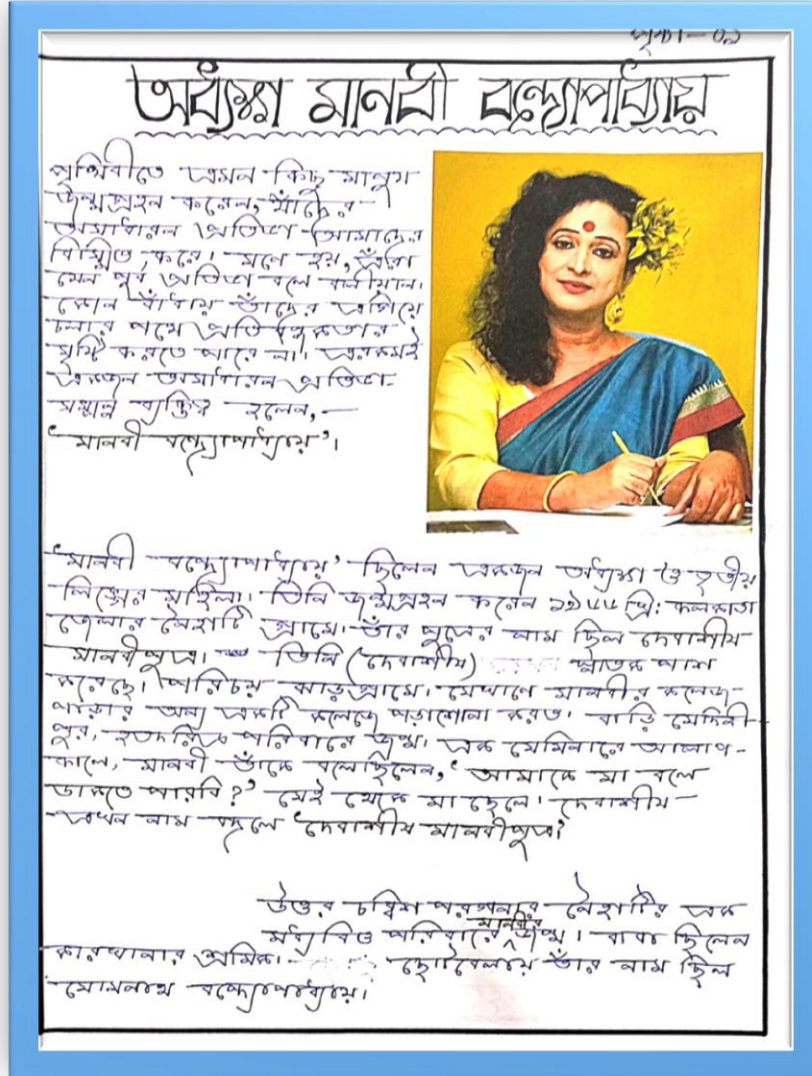 পৃষ্ঠা - ০১
অধ্যক্ষা মানবী বন্দ্যোপাধ্যায়
পৃথিবীতে এমন কিছু মানুষ
জন্মগ্রহন করেন, যাঁদের
অসাধারন প্রতিভা আমাদের
বিস্মিত করে। মনে হয়, এঁরা
যেন পূর্ব প্রতিভা বলে বলীয়ান।
কোন বাঁধায় তাঁদের এগিয়ে
চলার পথে প্রতিবন্ধকতার
সৃষ্টি করতে পারে না। এরকমই
একজন অসাধারন প্রতিভা-
সম্পন্ন ব্যক্তিত্ব হলেন,—
'মানবী বন্দ্যোপাধ্যায়'।
'মানবী বন্দ্যোপাধ্যায়' ছিলেন একজন অধ্যক্ষা ও তৃতীয়
লিঙ্গের মহিলা। তিনি জন্মগ্রহন করেন ১৯৬৪ খ্রি: কলকাতা
জেলার নৈহাটি গ্রামে। তাঁর পুত্রের নাম ছিল দেবাশীষ
মানবীপুত্র। তিনি (দেবাশীষ) স্নাতক পাশ
করেছে। পরিচয় ঝাড়গ্রামে। সেখানে মানবীর কলেজ-
পাড়ার অন্য একটি কলেজে পড়াশোনা করত। বাড়ি মেদিনী-
পুর, হতদরিদ্র পরিবারে জন্ম। এক সেমিনারে আলাপ-
কালে, মানবী তাঁকে বলেছিলেন, 'আমাকে মা বলে
ডাকতে পারবি?' সেই থেকে মা ছেলে। দেবাশীষ
এখন নাম বদলে 'দেবাশীষ মানবীপুত্র'।
উত্তর চব্বিশ পরগনার নৈহাটির এক
মধ্যবিত্ত পরিবারে মানবীর জন্ম। বাবা ছিলেন
কারখানার শ্রমিক। ছোটবেলায় তাঁর নাম ছিল
সোমনাথ বন্দ্যোপাধ্যায়।